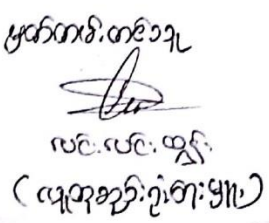 မှတ်တမ်းတင်သူ
လင်းလင်းထွန်း
(လူထုဆည်းဦးစီးမှူး)